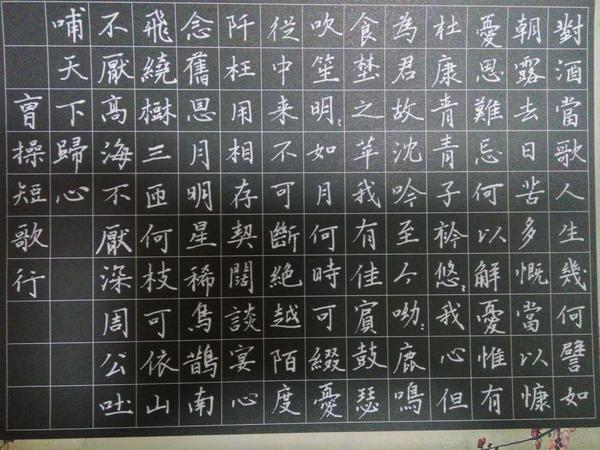 對酒當歌人生幾何譬如
朝露去日苦多慨當以慷
憂思難忘何以解憂惟有
杜康青青子衿悠:我心但
為君故沈吟至今呦:鹿鳴
食埜之苹我有佳賓鼓瑟
吹笙明:如月何時可綴憂
從中来不可斷絕越陌度
阡枉用相存契闊談宴心
念舊恩月明星稀烏鵲南
飛繞樹三匝何枝可依山
不厭高海不厭深周公吐
哺天下歸心
曹操短歌行